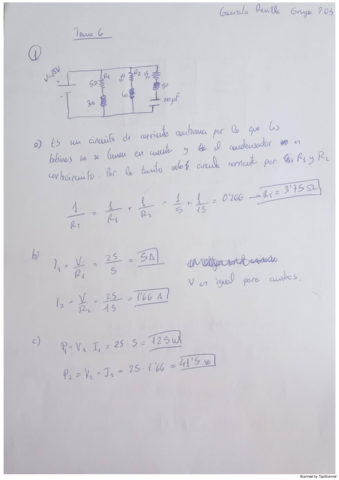 Gonzalo Revilla Grupo
Tema 6
1
V=25V
R1 R2
5Ω
a) Es un circuito de corriente continua por lo que las
bobinas no se tienen en cuenta y el condensador
cortocircuito. Por lo tanto solo circula corriente por R1 y R2
1/R2 = 1/R1 + 1/R2 = 1/5 + 1/15 = 0'266 → = 3'75 Ω
b) I1 = V/R1 = 25/5 = 5A
V es igual para ambas.
I2 = V/R2 = 25/15 = 1'66 A
c) P1 = V1 · I1 = 25 · 5 = 125 W
P2 = V2 · I2 = 25 · 1'66 = 41'5 W
Scanned by TapScanner